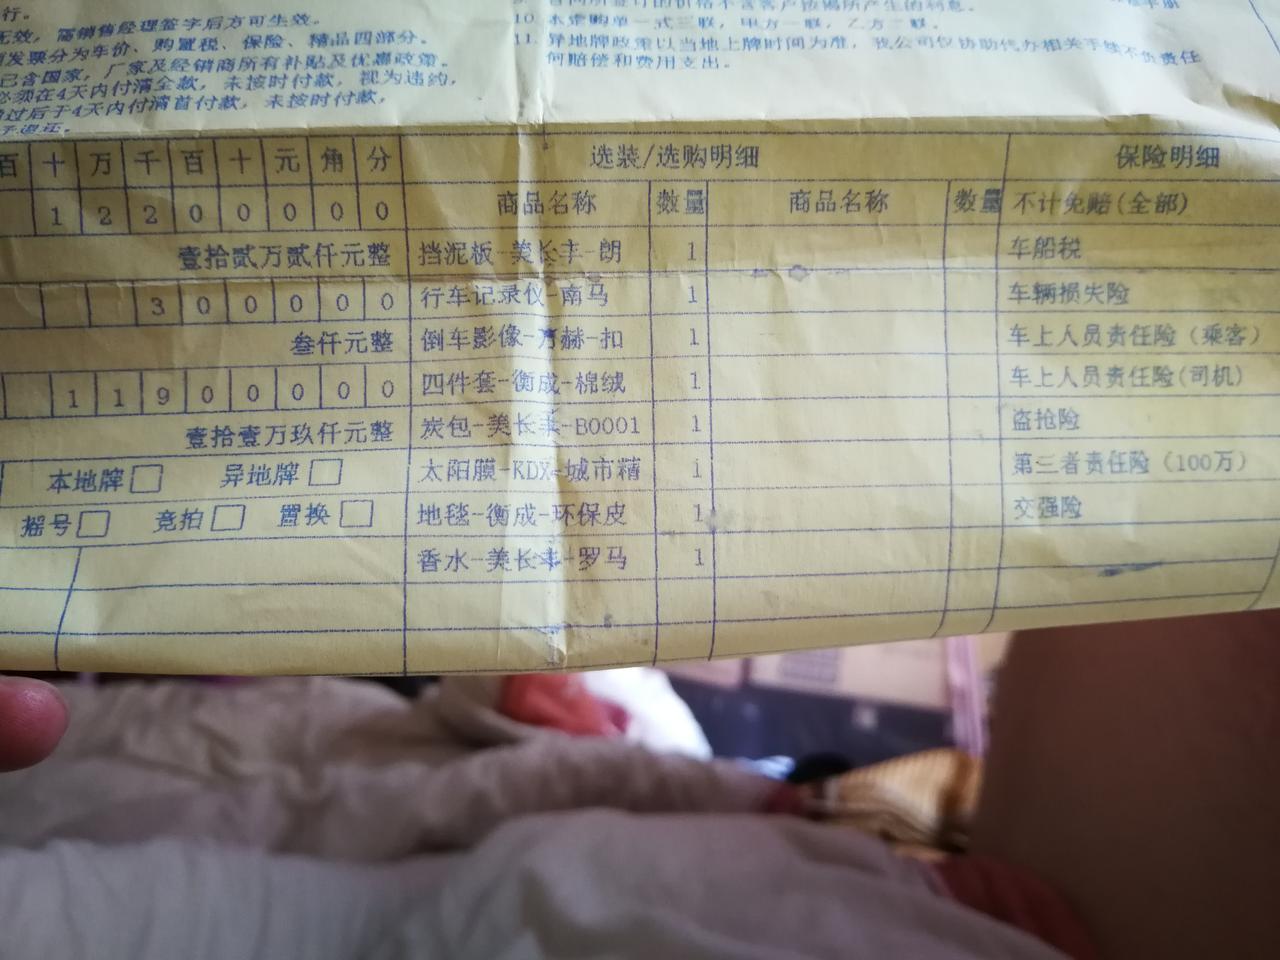 行。
无效，需销售经理签字后方可生效。
发票分为车价、购置税、保险、精品四部分。
已含国家，厂家及经销商所有补贴及优惠政策。
必须在4天内付清全款，未按时付款，视为违约，
过后于4天内付清首付款，未按时付款，
予退还。
10. 本定购单一式三联，甲方一联，乙方二联。
11. 异地牌政策以当地上牌时间为准，我公司仅协助代办相关手续不负责任
何赔偿和费用支出。
百 十 万 千 百 十 元 角 分 选装/选购明细 保险明细
1 2 2 0 0 0 0 0 商品名称 数量 商品名称 数量 不计免赔(全部)
壹拾贰万贰仟元整 挡泥板-美长丰-朗 1 车船税
3 0 0 0 0 0 行车记录仪-南马 1 车辆损失险
叁仟元整 倒车影像-万赫-扣 1 车上人员责任险（乘客）
1 1 9 0 0 0 0 0 四件套-衡成-棉绒 1 车上人员责任险(司机)
壹拾壹万玖仟元整 炭包-美长丰-B0001 1 盗抢险
本地牌 异地牌 太阳膜-KDX-城市精 1 第三者责任险（100万）
摇号 竞拍 置换 地毯-衡成-环保皮 1 交强险
香水-美长丰-罗马 1